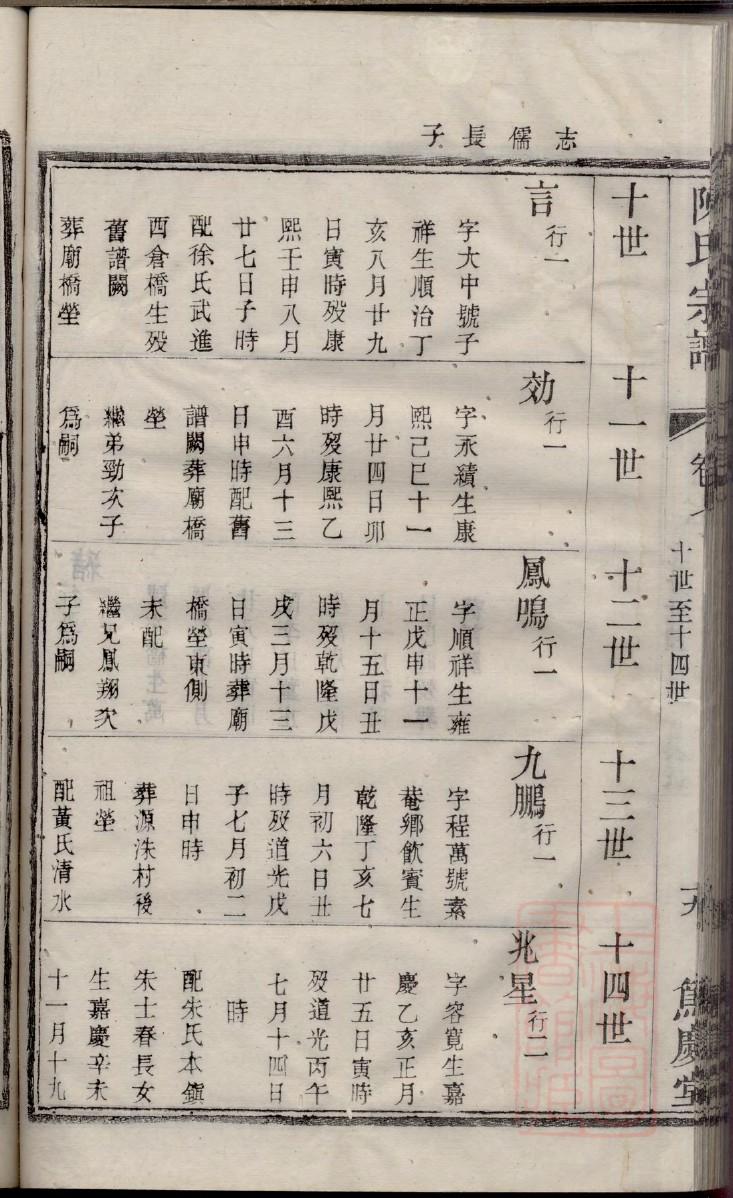 陳氏宗譜
卷
十世至十四世
篤慶堂
志儒長子
十世
言行一
字大中號子
祥生順治丁
亥八月廿九
日寅時歿康
熙壬申八月
廿七日子時
配徐氏武進
西倉橋生歿
舊譜闕
葬廟橋塋
十一世
効行一
字永績生康
熙己巳十一
月廿四日卯
時歿康熙乙
酉六月十三
日申時配舊
譜闕葬廟橋
塋
繼弟勁次子
爲嗣
十二世
鳳鳴行一
字順祥生雍
正戊申十一
月十五日丑
時歿乾隆戊
戌三月十三
日寅時葬廟
橋塋東側
未配
繼兄鳳翔次
子爲嗣
十三世
九鵬行一
字程萬號素
菴鄉飲賓生
乾隆丁亥七
月初六日丑
時歿道光戊
子七月初二
日申時
葬源洙村後
祖塋
配黃氏清水
十四世
兆星行二
字容寬生嘉
慶乙亥正月
廿五日寅時
歿道光丙午
七月十四日
時
配朱氏本鎮
朱士春長女
生嘉慶辛未
十一月十九